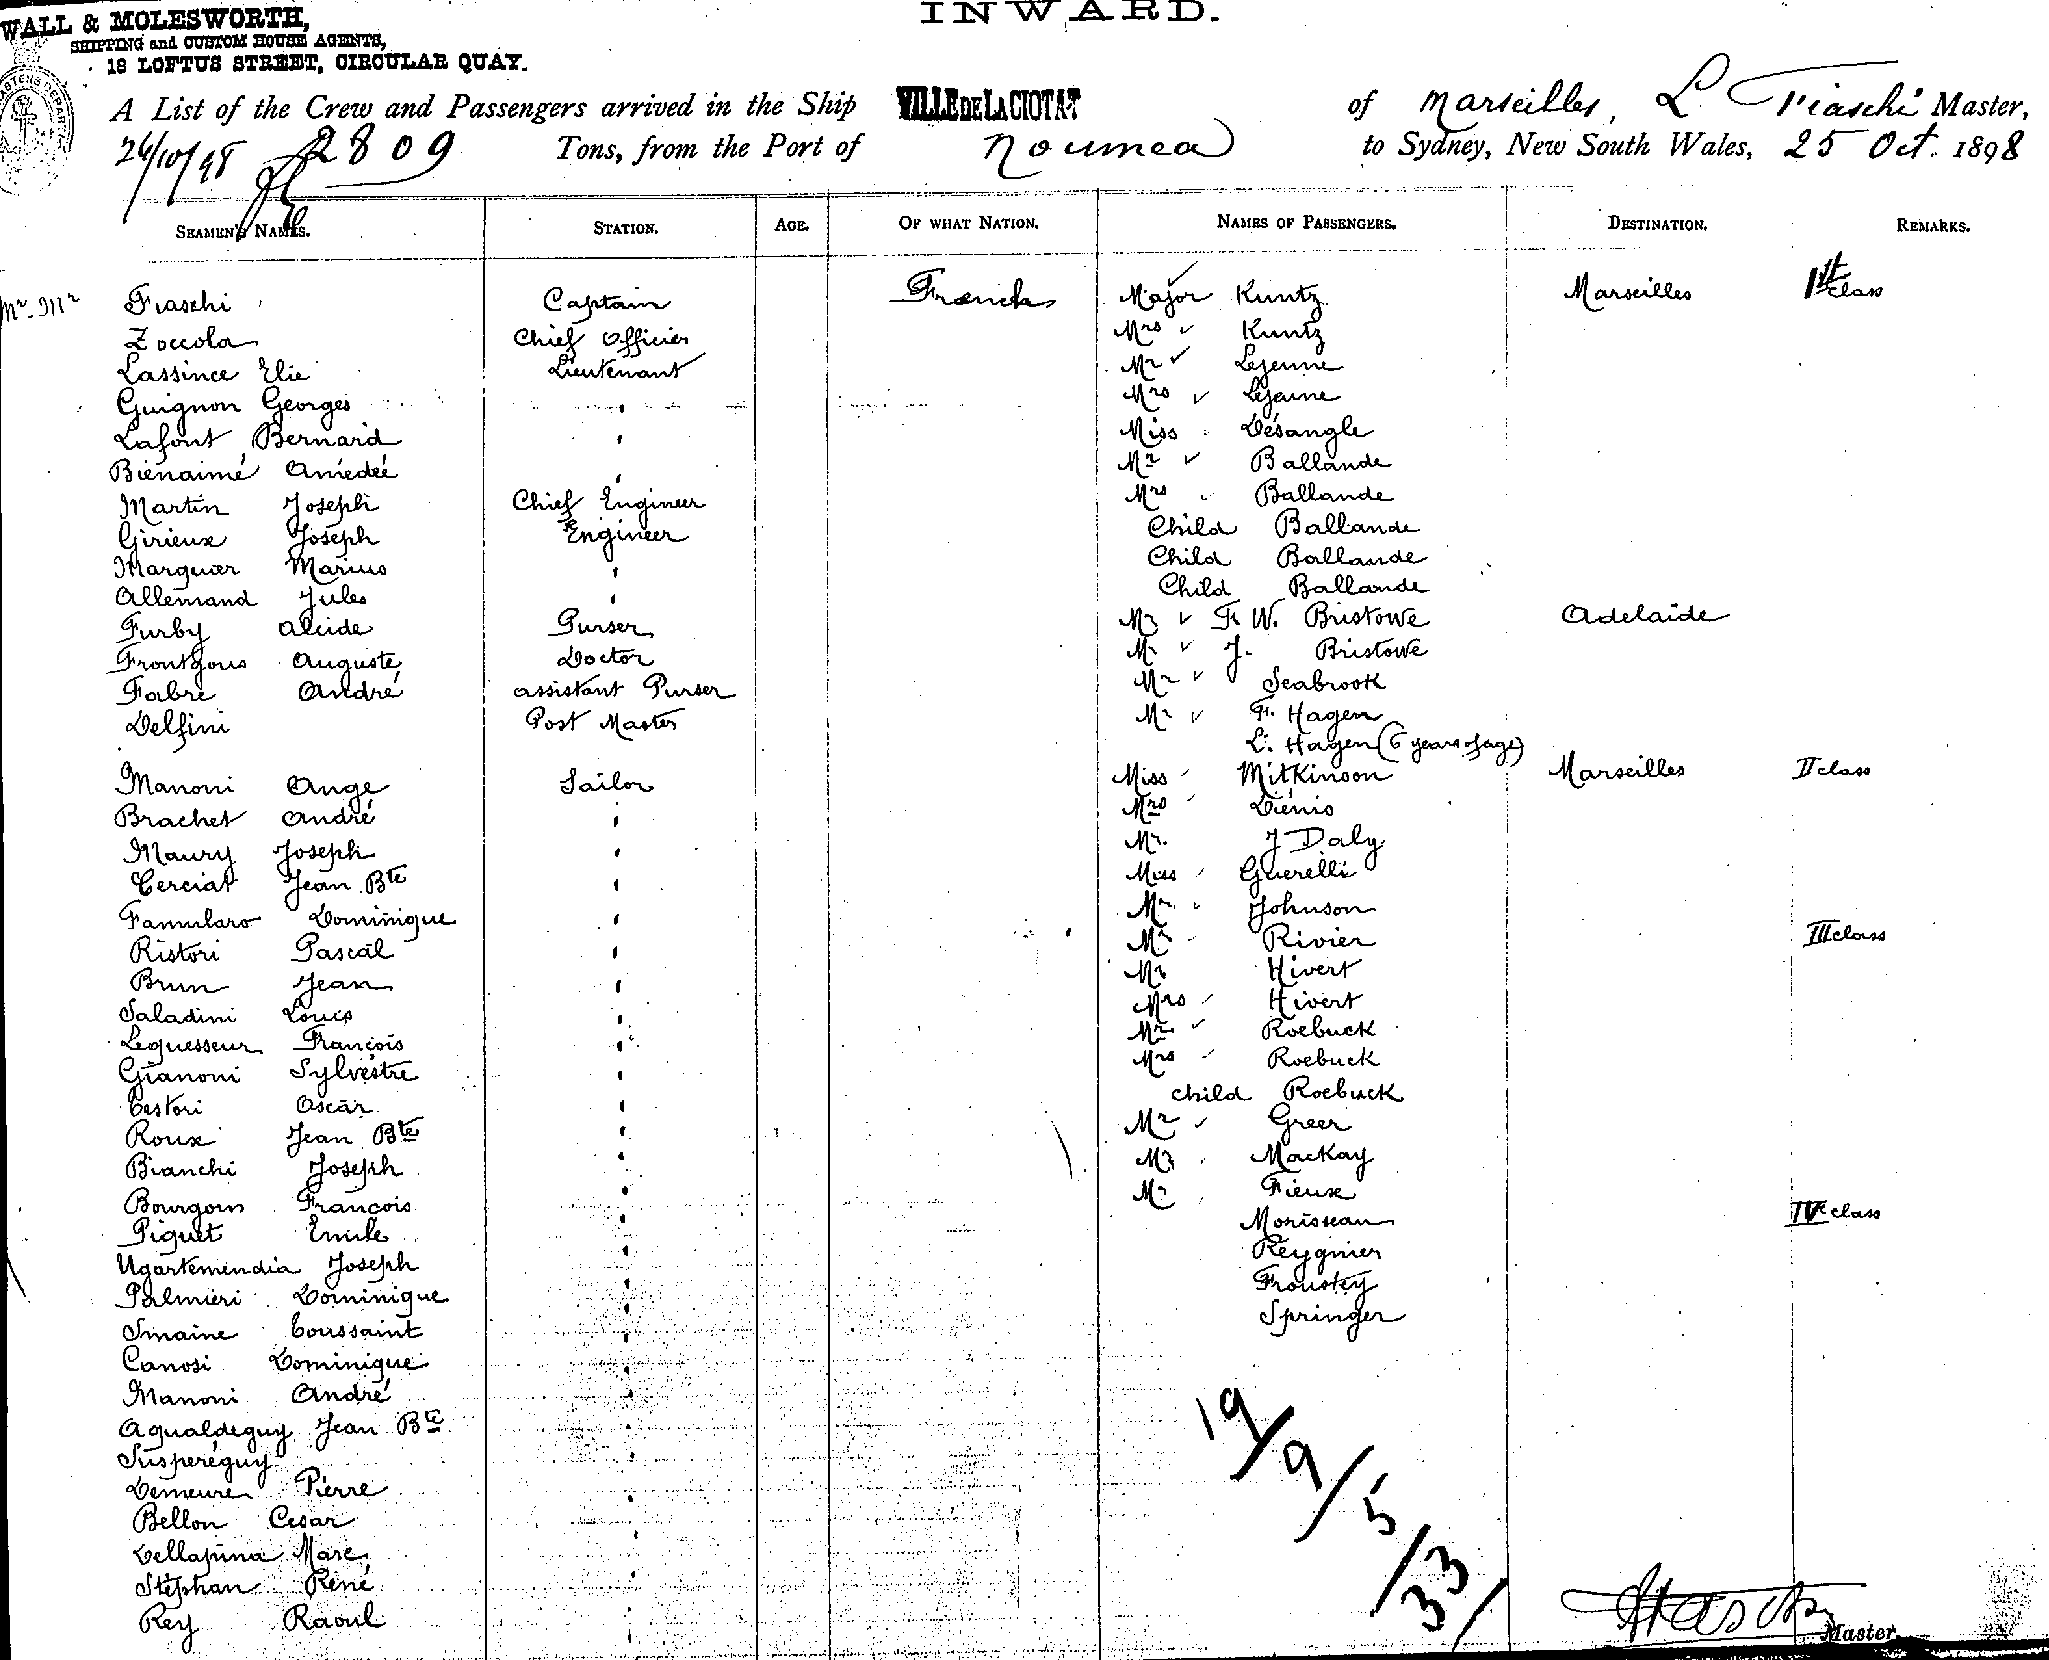 INWARD.
WALL & MOLESWORTH,
SHIPPING and CUSTOM HOUSE AGENTS,
18 LOFTUS STREET, CIRCULAR QUAY.
A List of the Crew and Passengers arrived in the Ship VILLE DE LA CIOTAT of Marseilles, L. Fiaschi Master,
26/10/98 2809 Tons, from the Port of Noumea to Sydney, New South Wales, 25 Oct. 1898
SEAMEN'S NAMES. STATION. AGE. OF WHAT NATION. NAMES OF PASSENGERS. DESTINATION. REMARKS.
Fiaschi Captain French Major Kuntz Marseilles Ist class
Zoccola Chief Officier Mrs Kuntz
Lassince Elie Lieutenant Mr Lejeune
Guignon Georges " Mrs Lejeune
Lafont Bernard " Miss Désangle
Bienaimé Amédée " Mr Ballande
Martin Joseph Chief Engineer Mrs Ballande
Girieux Joseph Engineer Child Ballande
Marquier Marius " Child Ballande
Allemand Jules " Child Ballande
Furby Alcide Purser Mr F. W. Bristowe Adelaide
Frontgous Auguste Doctor Mr J. Bristowe
Fabre André assistant Purser Mr Seabrook
Delfini Post Master Mr F. Hagen
L. Hagen (6 years of age)
Manoni Ange Sailor Miss Mitkinson Marseilles II class
Brachet André " Mrs Diénis
Maury Joseph " Mr. J Daly
Cerciat Jean Bte " Miss Guerelli
Famularo Dominique " Mr Johnson
Ristori Pascal " Mr Rivier III class
Brun Jean " Mr Hivert
Saladini Louis " Mrs Hivert
Lequesseur François " Mr Roebuck
Gianoni Sylvestre " Mrs Roebuck
Testori Oscar " child Roebuck
Roux Jean Bte " Mr Greer
Bianchi Joseph " Mr Mackay
Bourgoin François " Mr Fieux
Piguet Emile " Morisseau IV class
Ugartemendia Joseph " Reygnier
Palmieri Dominique " Froustey
Smaine Toussaint " Springer
Canosi Dominique "
Manoni André "
Agualdeguy Jean Bte "
Susperéguy "
Demeure Pierre "
Bellon Cesar "
Dellapina Marc "
Stéphan René "
Rey Raoul "
19/9/5/33/
Master.